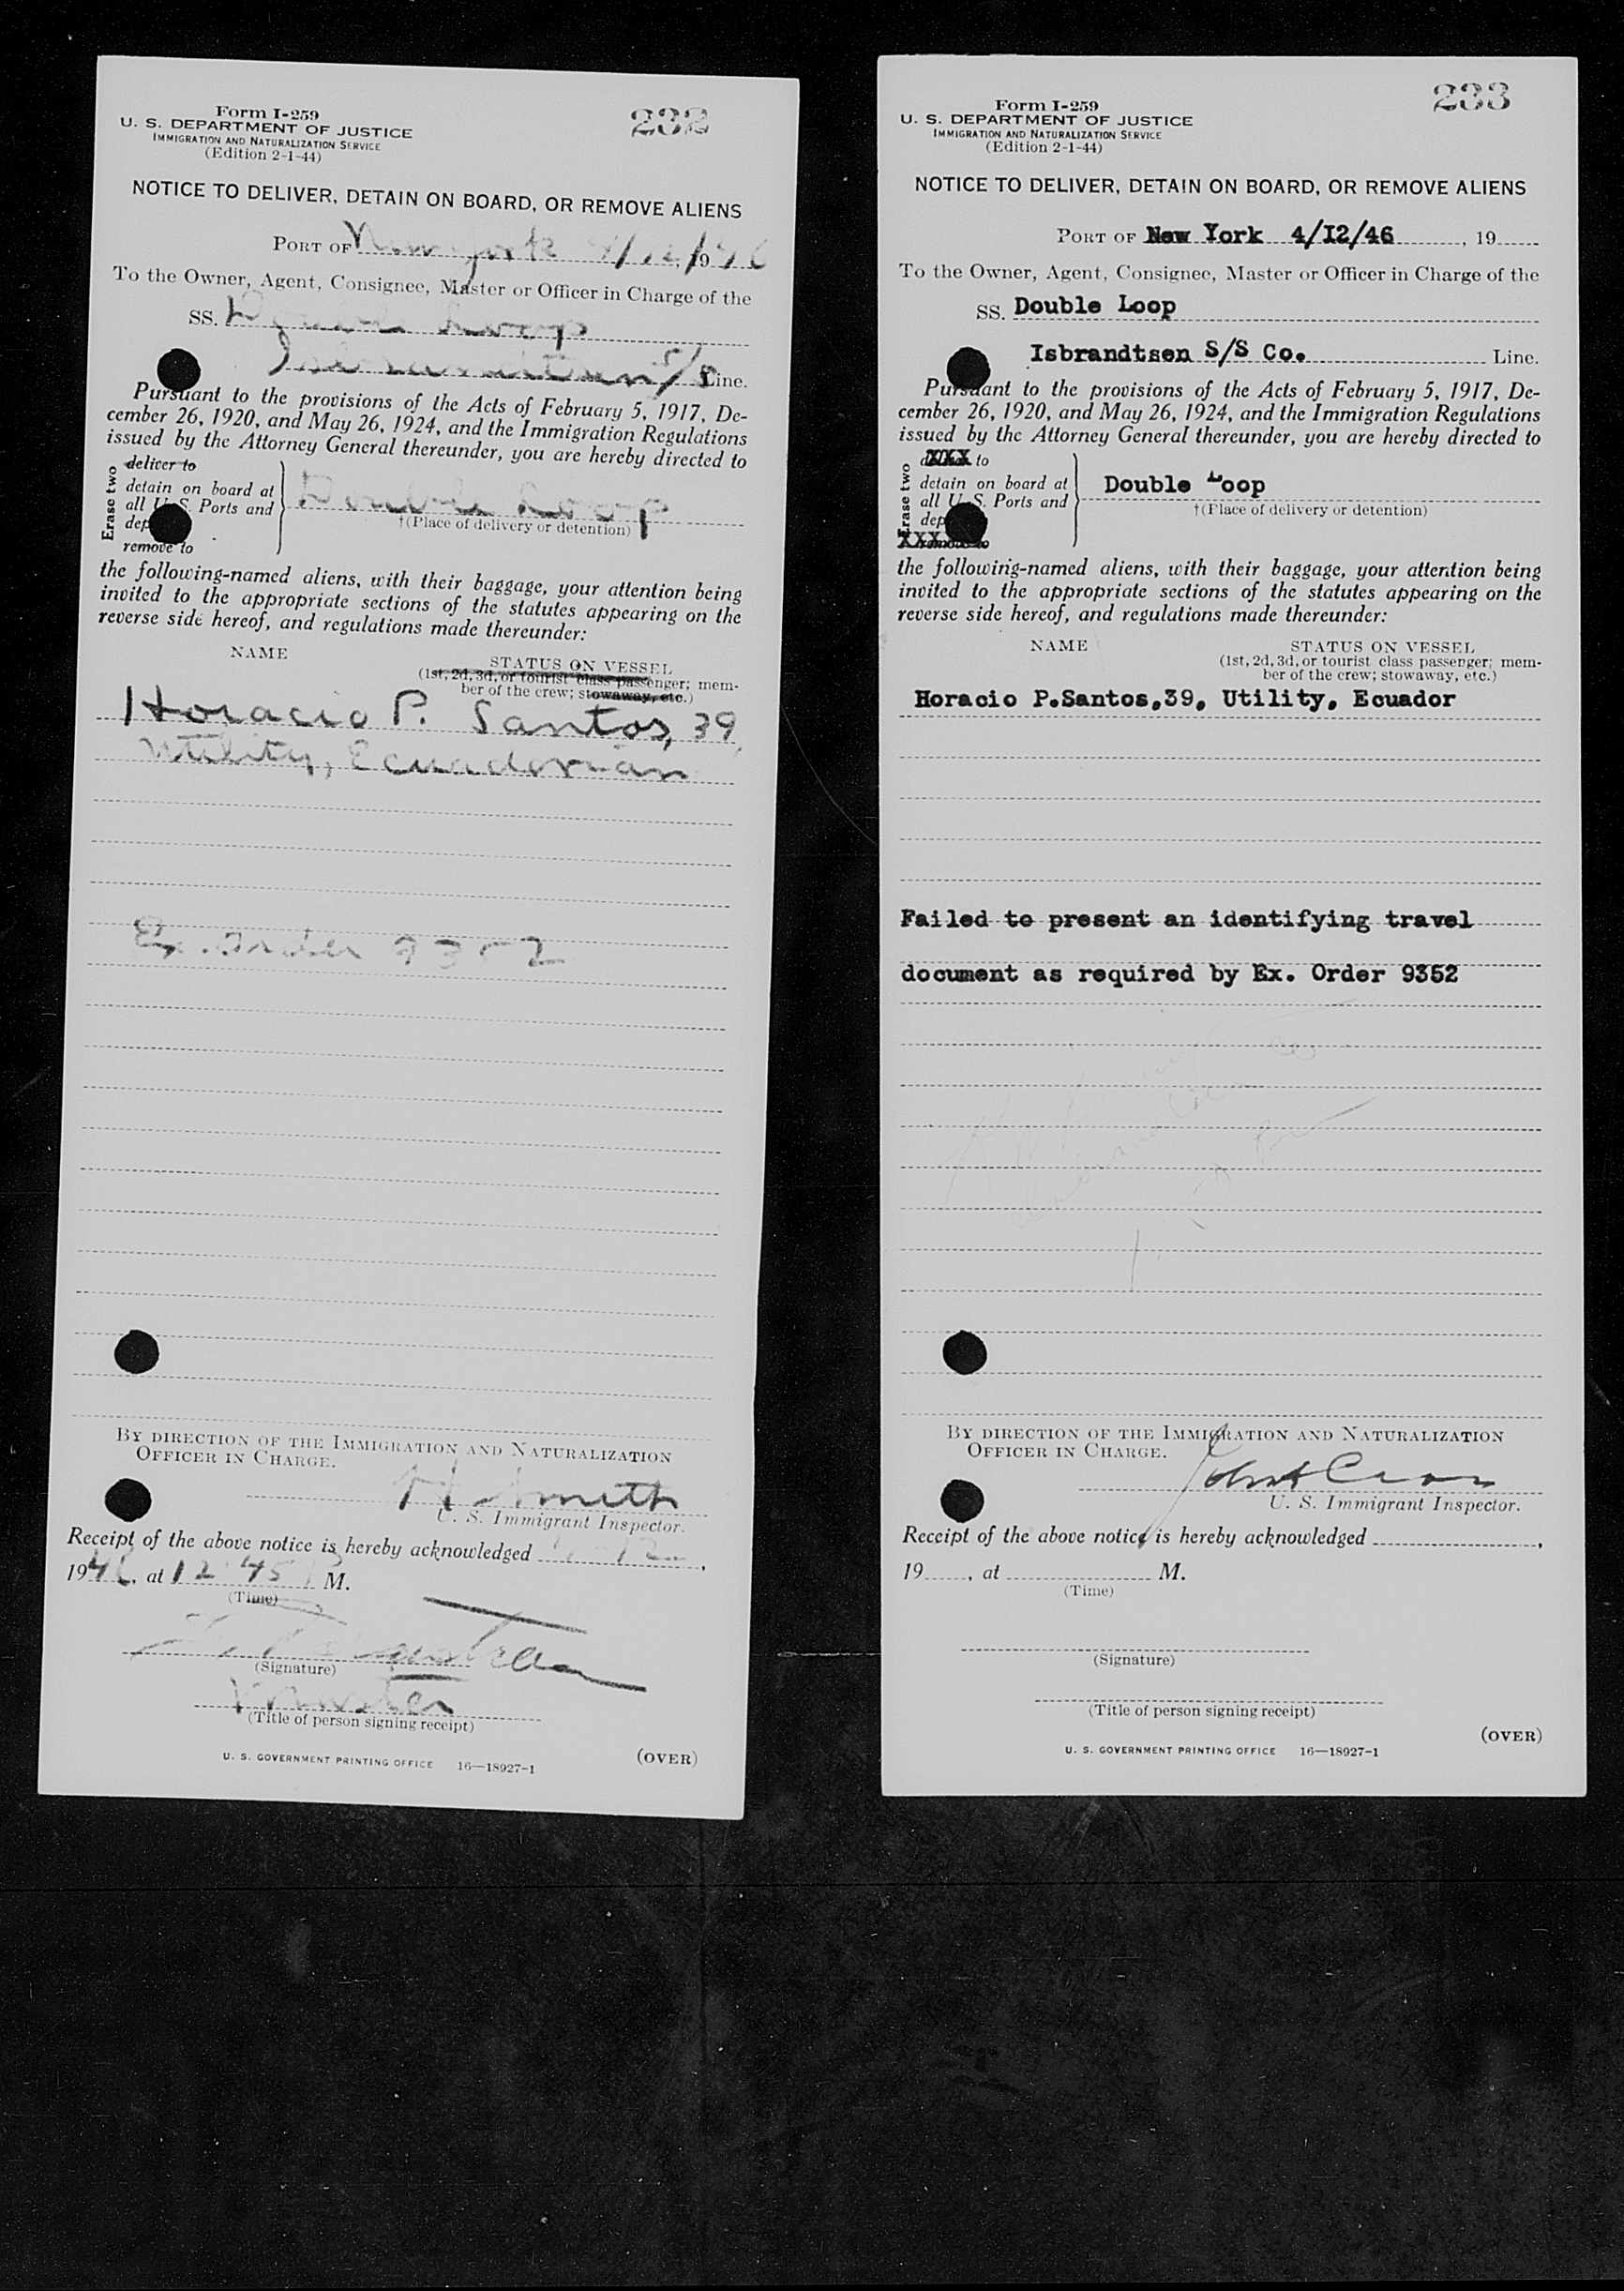 Form I-259
U. S. DEPARTMENT OF JUSTICE
IMMIGRATION AND NATURALIZATION SERVICE
(Edition 2-1-44)
232
NOTICE TO DELIVER, DETAIN ON BOARD, OR REMOVE ALIENS
PORT OF New York 4/12/, 1946
To the Owner, Agent, Consignee, Master or Officer in Charge of the
SS. Double Loop
Isbrandtsen S/S Line.
Pursuant to the provisions of the Acts of February 5, 1917, De-
cember 26, 1920, and May 26, 1924, and the Immigration Regulations
issued by the Attorney General thereunder, you are hereby directed to
Erase two
deliver to
detain on board at
all U. S. Ports and
dep
remove to
Double Loop
†(Place of delivery or detention)
the following-named aliens, with their baggage, your attention being
invited to the appropriate sections of the statutes appearing on the
reverse side hereof, and regulations made thereunder:
NAME
STATUS ON VESSEL
(1st, 2d, 3d, or tourist class passenger; mem-
ber of the crew; stowaway, etc.)
Horacio P. Santos, 39,
Utility, Ecuadorian
Ex. Order 9352
BY DIRECTION OF THE IMMIGRATION AND NATURALIZATION
OFFICER IN CHARGE.
H Smith
U. S. Immigrant Inspector.
Receipt of the above notice is hereby acknowledged 4-12,
1946, at 12:45 P M.
(Time)
(Signature)
Master
(Title of person signing receipt)
U. S. GOVERNMENT PRINTING OFFICE 16—18927-1
(OVER)
Form I-259
U. S. DEPARTMENT OF JUSTICE
IMMIGRATION AND NATURALIZATION SERVICE
(Edition 2-1-44)
233
NOTICE TO DELIVER, DETAIN ON BOARD, OR REMOVE ALIENS
PORT OF New York 4/12/46, 19
To the Owner, Agent, Consignee, Master or Officer in Charge of the
SS. Double Loop
Isbrandtsen S/S Co. Line.
Pursuant to the provisions of the Acts of February 5, 1917, De-
cember 26, 1920, and May 26, 1924, and the Immigration Regulations
issued by the Attorney General thereunder, you are hereby directed to
Erase two
XXX to
detain on board at
all U. S. Ports and
dep
XXX remove to
Double Loop
†(Place of delivery or detention)
the following-named aliens, with their baggage, your attention being
invited to the appropriate sections of the statutes appearing on the
reverse side hereof, and regulations made thereunder:
NAME
STATUS ON VESSEL
(1st, 2d, 3d, or tourist class passenger; mem-
ber of the crew; stowaway, etc.)
Horacio P.Santos,39, Utility, Ecuador
Failed to present an identifying travel
document as required by Ex. Order 9352
BY DIRECTION OF THE IMMIGRATION AND NATURALIZATION
OFFICER IN CHARGE.
U. S. Immigrant Inspector.
Receipt of the above notice is hereby acknowledged ,
19 , at M.
(Time)
(Signature)
(Title of person signing receipt)
U. S. GOVERNMENT PRINTING OFFICE 16—18927-1
(OVER)